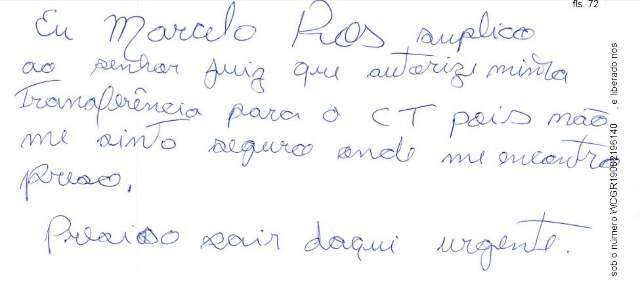 fls. 72
Eu Marcelo Rios suplico
ao senhor juiz que autorize minha
Transferência para o CT pois não
me sinto seguro onde me encontro
preso.
Preciso sair daqui urgente.
sob o número WCGR19082196140 , e liberado nos